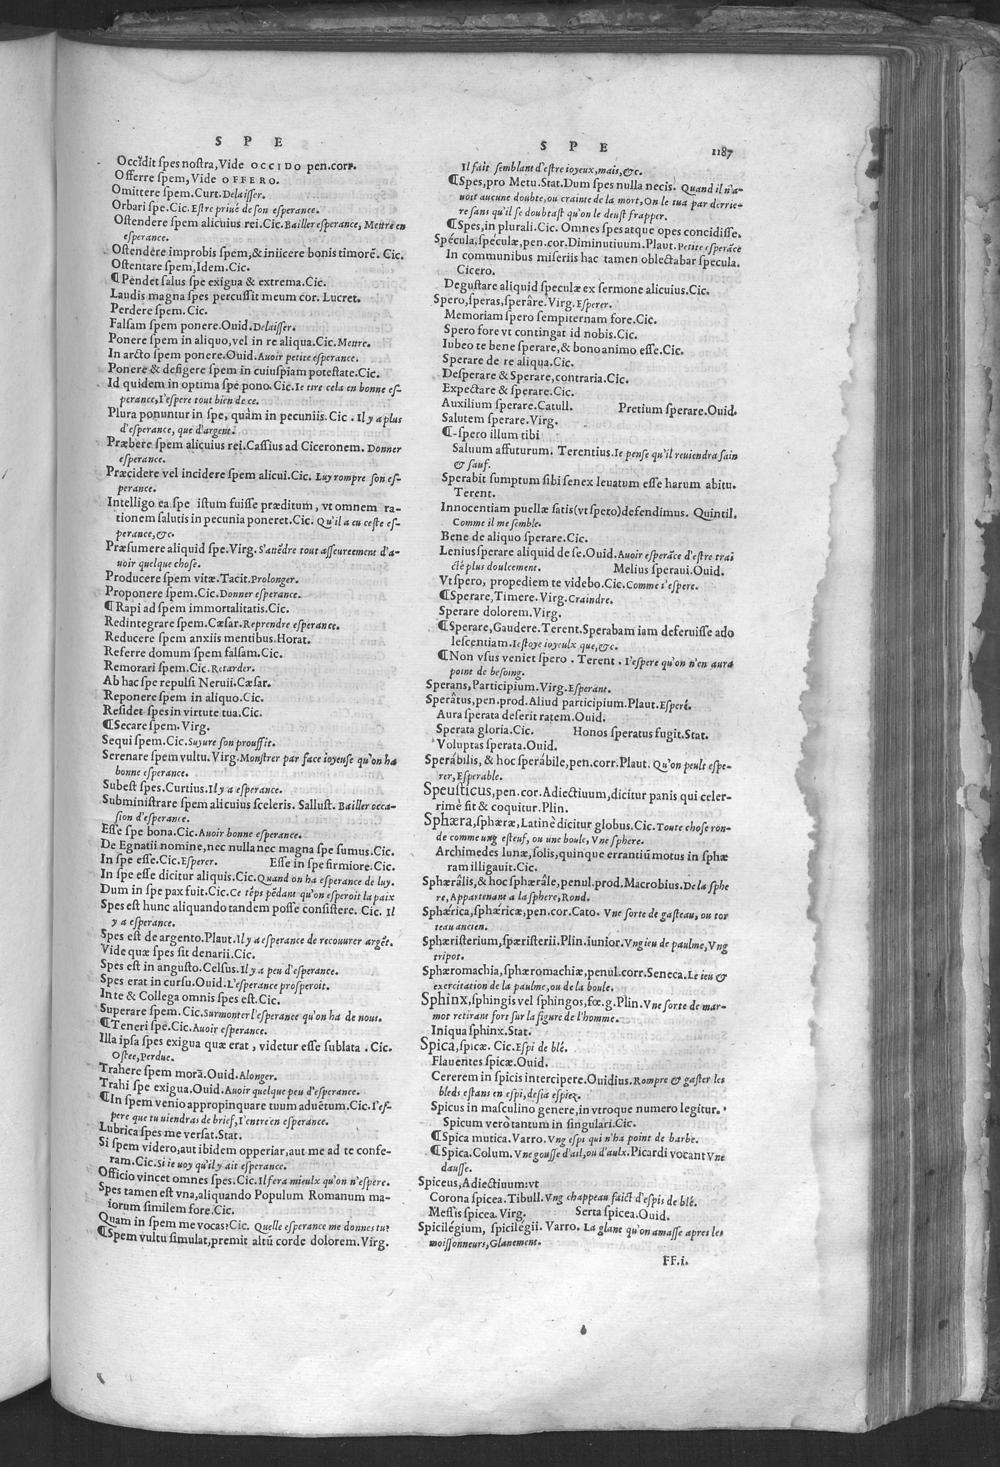 S P E
Occidit spes nostra, Vide OCCIDO pen.corr.
Offerre spem, Vide OFFERO.
Omittere spem. Curt. Delaisser.
Orbari spe. Cic. Estre priué de son esperance.
Ostendere spem alicuius rei. Cic. Bailler esperance, Mettre en
esperance.
Ostendere improbis spem, & iniicere bonis timorē. Cic.
Ostentare spem, Idem. Cic.
¶ Pendet salus spe exigua & extrema. Cic.
Laudis magna spes percussit meum cor. Lucret.
Perdere spem. Cic.
Falsam spem ponere. Ouid. Delaisser.
Ponere spem in aliquo, vel in re aliqua. Cic. Mettre.
In arcto spem ponere. Ouid. Auoir petite esperance.
Ponere & defigere spem in cuiuspiam potestate. Cic.
Id quidem in optima spe pono. Cic. Ie tire cela en bonne es-
perance, I'espere tout bien de ce.
Plura ponuntur in spe, quàm in pecuniis. Cic. Il y a plus
d'esperance, que d'argent.
Præbere spem alicuius rei. Cassius ad Ciceronem. Donner
esperance.
Præcidere vel incidere spem alicui. Cic. Luy rompre son es-
perance.
Intelligo ea spe istum fuisse præditum, vt omnem ra-
tionem salutis in pecunia poneret. Cic. Qu'il a eu ceste es-
perance, &c.
Præsumere aliquid spe. Virg. S'attēdre tout asseureement d'a-
uoir quelque chose.
Producere spem vitæ. Tacit. Prolonger.
Proponere spem. Cic. Donner esperance.
¶ Rapi ad spem immortalitatis. Cic.
Redintegrare spem. Cæsar. Reprendre esperance.
Reducere spem anxiis mentibus. Horat.
Referre domum spem falsam. Cic.
Remorari spem. Cic. Retarder.
Ab hac spe repulsi Neruii. Cæsar.
Reponere spem in aliquo. Cic.
Residet spes in virtute tua. Cic.
¶ Secare spem. Virg.
Sequi spem. Cic. Suyure son prouffit.
Serenare spem vultu. Virg. Monstrer par face ioyeuse qu'on ha
bonne esperance.
Subest spes. Curtius. Il y a esperance.
Subministrare spem alicuius sceleris. Sallust. Bailler occa-
sion d'esperance.
Esse spe bona. Cic. Auoir bonne esperance.
De Egnatii nomine, nec nulla nec magna spe sumus. Cic.
In spe esse. Cic. Esperer. Esse in spe firmiore. Cic.
In spe esse dicitur aliquis. Cic. Quand on ha esperance de luy.
Dum in spe pax fuit. Cic. Ce tēps pēdant qu'on esperoit la paix
Spes est hunc aliquando tandem posse consistere. Cic. Il
y a esperance.
Spes est de argento. Plaut. Il y a esperance de recouurer argēt.
Vide quæ spes sit denarii. Cic.
Spes est in angusto. Celsus. Il y a peu d'esperance.
Spes erat in cursu. Ouid. L'esperance prosperoit.
In te & Collega omnis spes est. Cic.
Superare spem. Cic. Surmonter l'esperance qu'on ha de nous.
¶ Teneri spe. Cic. Auoir esperance.
Illa ipsa spes exigua quæ erat, videtur esse sublata. Cic.
Ostee, Perdue.
Trahere spem morā. Ouid. Alonger.
Trahi spe exigua. Ouid. Auoir quelque peu d'esperance.
¶ In spem venio appropinquare tuum aduētum. Cic. I'es-
pere que tu uiendras de brief, I'entre en esperance.
Lubrica spes me versat. Stat.
Si spem videro, aut ibidem opperiar, aut me ad te confe-
ram. Cic. Si ie uoy qu'il y ait esperance.
Officio vincet omnes spes. Cic. Il fera mieulx qu'on n'espere.
Spes tamen est vna, aliquando Populum Romanum ma-
iorum similem fore. Cic.
Quam in spem me vocas? Cic. Quelle esperance me donnes tu?
¶ Spem vultu simulat, premit altū corde dolorem. Virg.
S P E 1187
Il fait semblant d'estre ioyeux, mais, &c.
¶ Spes, pro Metu. Stat. Dum spes nulla necis. Quand il n'a-
uoit aucune doubte, ou crainte de la mort, On le tua par derrie-
re sans qu'il se doubtast qu'on le deust frapper.
¶ Spes, in plurali. Cic. Omnes spes atque opes concidisse.
Spécula, speculæ, pen. cor. Diminutiuum. Plaut. Petite esperāce
In communibus miseriis hac tamen oblectabar specula.
Cicero.
Degustare aliquid speculæ ex sermone alicuius. Cic.
Spero, speras, sperâre. Virg. Esperer.
Memoriam spero sempiternam fore. Cic.
Spero fore vt contingat id nobis. Cic.
Iubeo te bene sperare, & bono animo esse. Cic.
Sperare de re aliqua. Cic.
Desperare & Sperare, contraria. Cic.
Expectare & sperare. Cic.
Auxilium sperare. Catull. Pretium sperare. Ouid.
Salutem sperare. Virg.
¶ -spero illum tibi
Saluum affuturum. Terentius. Ie pense qu'il reuiendra sain
& sauf.
Sperabit sumptum sibi senex leuatum esse harum abitu.
Terent.
Innocentiam puellæ satis (vt speto) defendimus. Quintil.
Comme il me semble.
Bene de aliquo sperare. Cic.
Lenius sperare aliquid de se. Ouid. Auoir esperāce d'estre trai
cté plus doulcement. Melius speraui. Ouid.
Vt spero, propediem te videbo. Cic. Comme i'espere.
¶ Sperare, Timere. Virg. Craindre.
Sperare dolorem. Virg.
¶ Sperare, Gaudere. Terent. Sperabam iam deferuisse ado
lescentiam. Iestoye ioyeulx que, &c.
¶ Non vsus veniet spero. Terent. I'espere qu'on n'en aura
point de besoing.
Sperans, Participium. Virg. Esperant.
Sperâtus, pen. prod. Aliud participium. Plaut. Esperé.
Aura sperata deserit ratem. Ouid.
Sperata gloria. Cic. Honos speratus fugit. Stat.
Voluptas sperata. Ouid.
Sperábilis, & hoc sperábile, pen. corr. Plaut. Qu'on peult espe-
rer, Esperable.
Speusticus, pen. cor. Adiectiuum, dicitur panis qui celer-
rimè fit & coquitur. Plin.
Sphæra, sphæræ, Latinè dicitur globus. Cic. Toute chose ron-
de comme ung esteuf, ou une boule, Vne sphere.
Archimedes lunæ, solis, quinque errantiū motus in sphæ
ram illigauit. Cic.
Sphærâlis, & hoc sphærâle, penul. prod. Macrobius. De la sphe
re, Appartenant a la sphere, Rond.
Sphǽrica, sphǽricæ, pen. cor. Cato. Vne sorte de gasteau, ou tor
teau ancien.
Sphæristerium, spæristerii. Plin. iunior. Vng ieu de paulme, Vng
tripot.
Sphæromachia, sphæromachiæ, penul. corr. Seneca. Le ieu &
exercitation de la paulme, ou de la boule.
Sphinx, sphingis vel sphingos, fœ. g. Plin. Vne sorte de mar-
mot retirant fort sur la figure de l'homme.
Iniqua sphinx. Stat.
Spica, spicæ. Cic. Espi de blé.
Flauentes spicæ. Ouid.
Cererem in spicis intercipere. Ouidius. Rompre & gaster les
bleds estans en espi, desia espiez.
Spicus in masculino genere, in vtroque numero legitur.
Spicum verò tantum in singulari. Cic.
¶ Spica mutica. Varro. Vng espi qui n'ha point de barbe.
¶ Spica. Colum. Vne gousse d'ail, ou d'aulx. Picardi vocant Vne
dausse.
Spiceus, Adiectiuum: vt
Corona spicea. Tibull. Vng chappeau faict d'espis de blé.
Messis spicea. Virg. Serta spicea. Ouid.
Spicilégium, spicilégii. Varro. La glane qu'on amasse apres les
moissonneurs, Glanement.
FF.i.